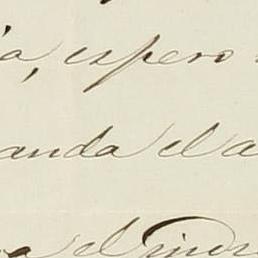 a, espero
anda el a
a el